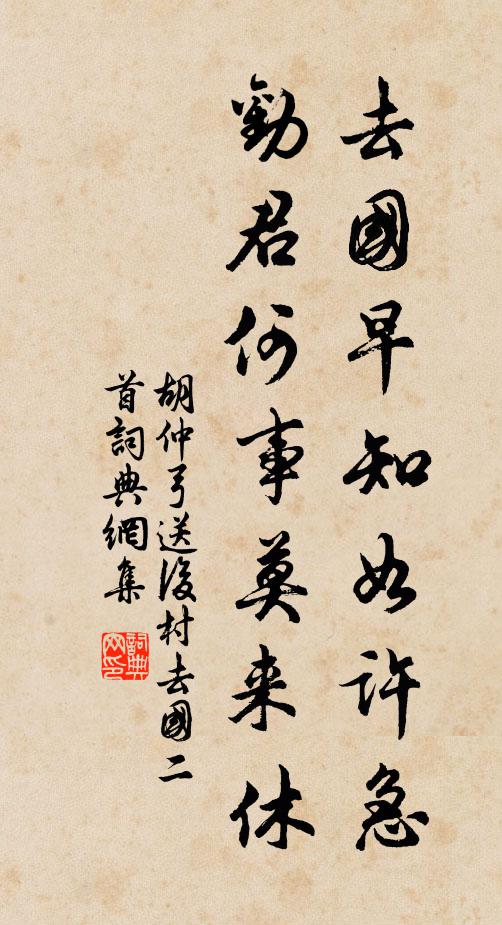 去國早知如許急
勸君何事莫来休
胡仲弓送後村去國二
首詞典網集
詞典網印